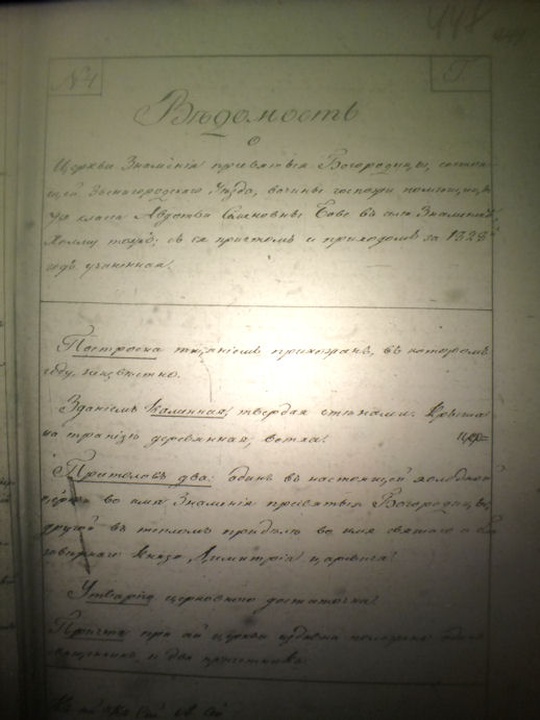 448
№ 1
Г.
Вѣдомость
о
Церкви Знаменія пресвятыя Богородицы, состоя-
щей Звенигородскаго Уѣзда, вотчины госпожи помѣщицы
класса Авдотьи Семеновны въ селѣ Знаменск
тожъ; съ ея причтомъ и приходомъ за 1828
годъ учиненная.
Построена тщаніемъ прихожанъ, въ которомъ
году, неизвѣстно.
Зданіемъ каменная, твердая стѣнами. Крыша
на трапезѣ деревянная, ветха.
Престоловъ два: одинъ въ настоящей холодной
церкви во имя Знаменія пресвятыя Богородицы,
другой въ тепломъ придѣлѣ во имя святаго и бла
говѣрнаго Князя Димитрія царевича.
Утварію церковною достаточна.
Причта при сей церкви издавна положено одинъ
священникъ, и два причетника.